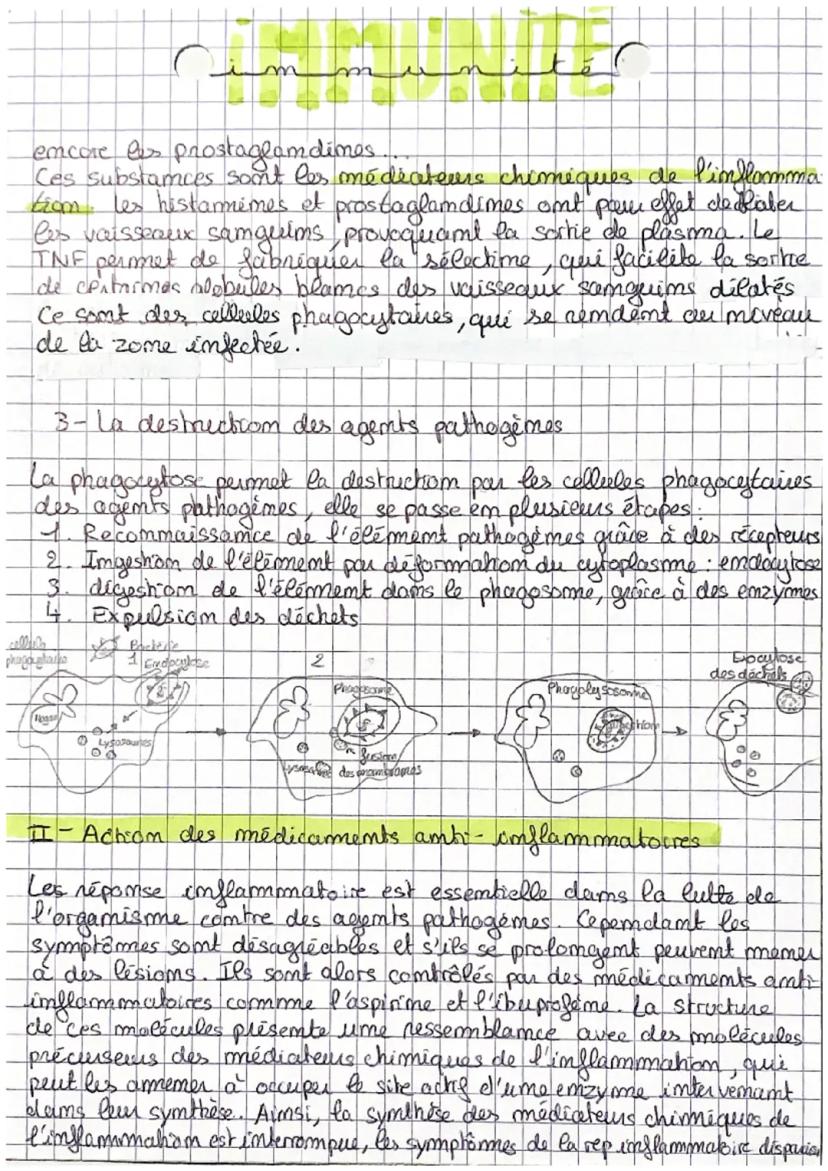 IMMUNITÉ
immunité
encore les prostaglandines...
Ces substances sont les médiateurs chimiques de l'inflamma
tion. les histamines et prostaglandines ont pour effet de dilater
les vaisseaux sanguins, provoquant la sortie de plasma. Le
TNF permet de fabriquer la sélectine, qui facilite la sortie
de certaines globules blancs des vaisseaux sanguins dilatés
Ce sont des cellules phagocytaires, qui se rendent au niveau
de la zone infectée.
3 - La destruction des agents pathogènes
La phagocytose permet la destruction par les cellules phagocytaires
des agents pathogènes, elle se passe en plusieurs étapes :
1. Reconnaissance de l'élément pathogènes grâce à des récepteurs
2. Ingestion de l'élément par déformation du cytoplasme : endocytose
3. digestion de l'élément dans le phagosome, grâce à des enzymes
4. Expulsion des déchets
cellule phagocytaire
Bactérie
1 Endocytose
Noyau
Lysosomes
2
Phagosome
fusion
des membranes
Lysosome
Phagolysosome
Exocytose
des déchets
II - Action des médicaments anti-inflammatoires
Les réponse inflammatoire est essentielle dans la lutte de
l'organisme contre des agents pathogènes. Cependant les
symptômes sont désagréables et s'ils se prolongent peuvent mener
à des lésions. Ils sont alors contrôlés par des médicaments anti-
inflammatoires comme l'aspirine et l'ibuprofène. La structure
de ces molécules présente une ressemblance avec des molécules
précurseurs des médiateurs chimiques de l'inflammation, qui
peut les amener à occuper le site actif d'une enzyme intervenant
dans leur synthèse. Ainsi, la synthèse des médiateurs chimiques de
l'inflammation est interrompue, les symptômes de la rep inflammatoire